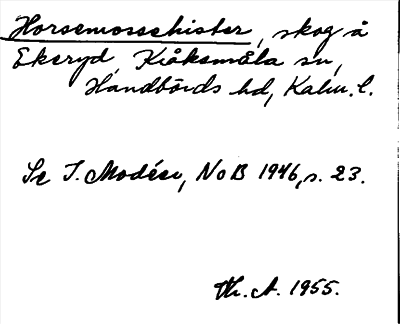 Horsemossehister, skog å
Ekeryd, Kråksmåla sn,
Handbörds hd, Kalm. l.
Se I. Modéer, NoB 1946, s. 23.
Th. A. 1955.